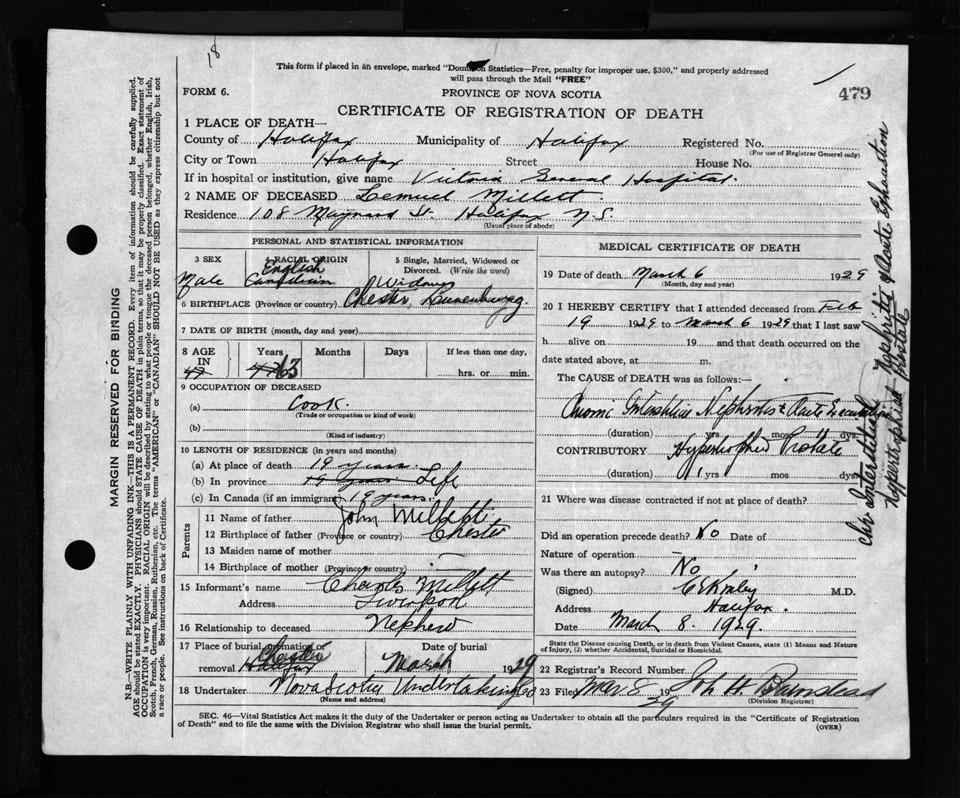 18
This form if placed in an envelope, marked "Dominion Statistics—Free, penalty for improper use, $300," and properly addressed
will pass through the Mail "FREE"
479
FORM 6.
PROVINCE OF NOVA SCOTIA
CERTIFICATE OF REGISTRATION OF DEATH
1 PLACE OF DEATH—
County of Halifax Municipality of Halifax Registered No.
(For use of Registrar General only)
City or Town Halifax Street House No.
If in hospital or institution, give name Victoria General Hospital.
2 NAME OF DECEASED Lemuel Millett
Residence 108 Maynard St. Halifax N.S.
(Usual place of abode)
PERSONAL AND STATISTICAL INFORMATION
3 SEX 4 RACIAL ORIGIN 5 Single, Married, Widowed or Divorced. (Write the word)
Male English Canadian Widower
6 BIRTHPLACE (Province or country) Chester Lunenburg
7 DATE OF BIRTH (month, day and year)
8 AGE IN Years Months Days If less than one day,
63 hrs. or min.
9 OCCUPATION OF DECEASED
(a) Cook.
(Trade or occupation or kind of work)
(b)
(Kind of industry)
10 LENGTH OF RESIDENCE (in years and months)
(a) At place of death 19 years.
(b) In province 19 years. Life
(c) In Canada (if an immigrant) 19 years.
Parents
11 Name of father John Millett
12 Birthplace of father (Province or country) Chester
13 Maiden name of mother —
14 Birthplace of mother (Province or country) —
15 Informant's name Charles Millett
Address Liverpool
16 Relationship to deceased Nephew
17 Place of burial, cremation or removal Halifax Chester
Date of burial March 1929
18 Undertaker Nova Scotia Undertaking Co
(Name and address)
MEDICAL CERTIFICATE OF DEATH
19 Date of death March 6 1929
(Month, day and year)
20 I HEREBY CERTIFY that I attended deceased from Feb
19 1929 to March 6 1929 that I last saw
h alive on 19 and that death occurred on the
date stated above, at m.
The CAUSE OF DEATH was as follows:—
Chronic Interstitial Nephritis &
(duration) yrs mos dys.
CONTRIBUTORY Hypertrophied Prostate
(duration) 1 yrs mos dys.
21 Where was disease contracted if not at place of death?
Did an operation precede death? No Date of
Nature of operation —
Was there an autopsy? No
(Signed) M.D.
Address Halifax.
Date March 8. 1929.
State the Disease causing Death, or in death from Violent Causes, state (1) Means and Nature
of Injury, (2) whether Accidental, Suicidal or Homicidal.
22 Registrar's Record Number
23 Filed Mar 8 1929 Jno H Barnstead
(Division Registrar)
SEC. 46—Vital Statistics Act makes it the duty of the Undertaker or person acting as Undertaker to obtain all the particulars required in the "Certificate of Registration
of Death" and to file the same with the Division Registrar who shall issue the burial permit.
(OVER)
MARGIN RESERVED FOR BINDING
N.B.—WRITE PLAINLY WITH UNFADING INK—THIS IS A PERMANENT RECORD. Every item of information should be carefully supplied.
AGE should be stated EXACTLY. PHYSICIANS should STATE CAUSE OF DEATH in plain terms, so that it may be properly classified. Exact statement of
OCCUPATION is very important. RACIAL ORIGIN will be described by stating to what people or tongue the deceased person belonged, whether English, Irish,
Scotch, French, German, Russian, Ruthenian, etc. The terms "AMERICAN" or "CANADIAN" SHOULD NOT BE USED as they express citizenship but not
a race or people. See instructions on back of Certificate.
Chr Interstitial Nephritis & Acute Exhaustion
Hypertrophied Prostate